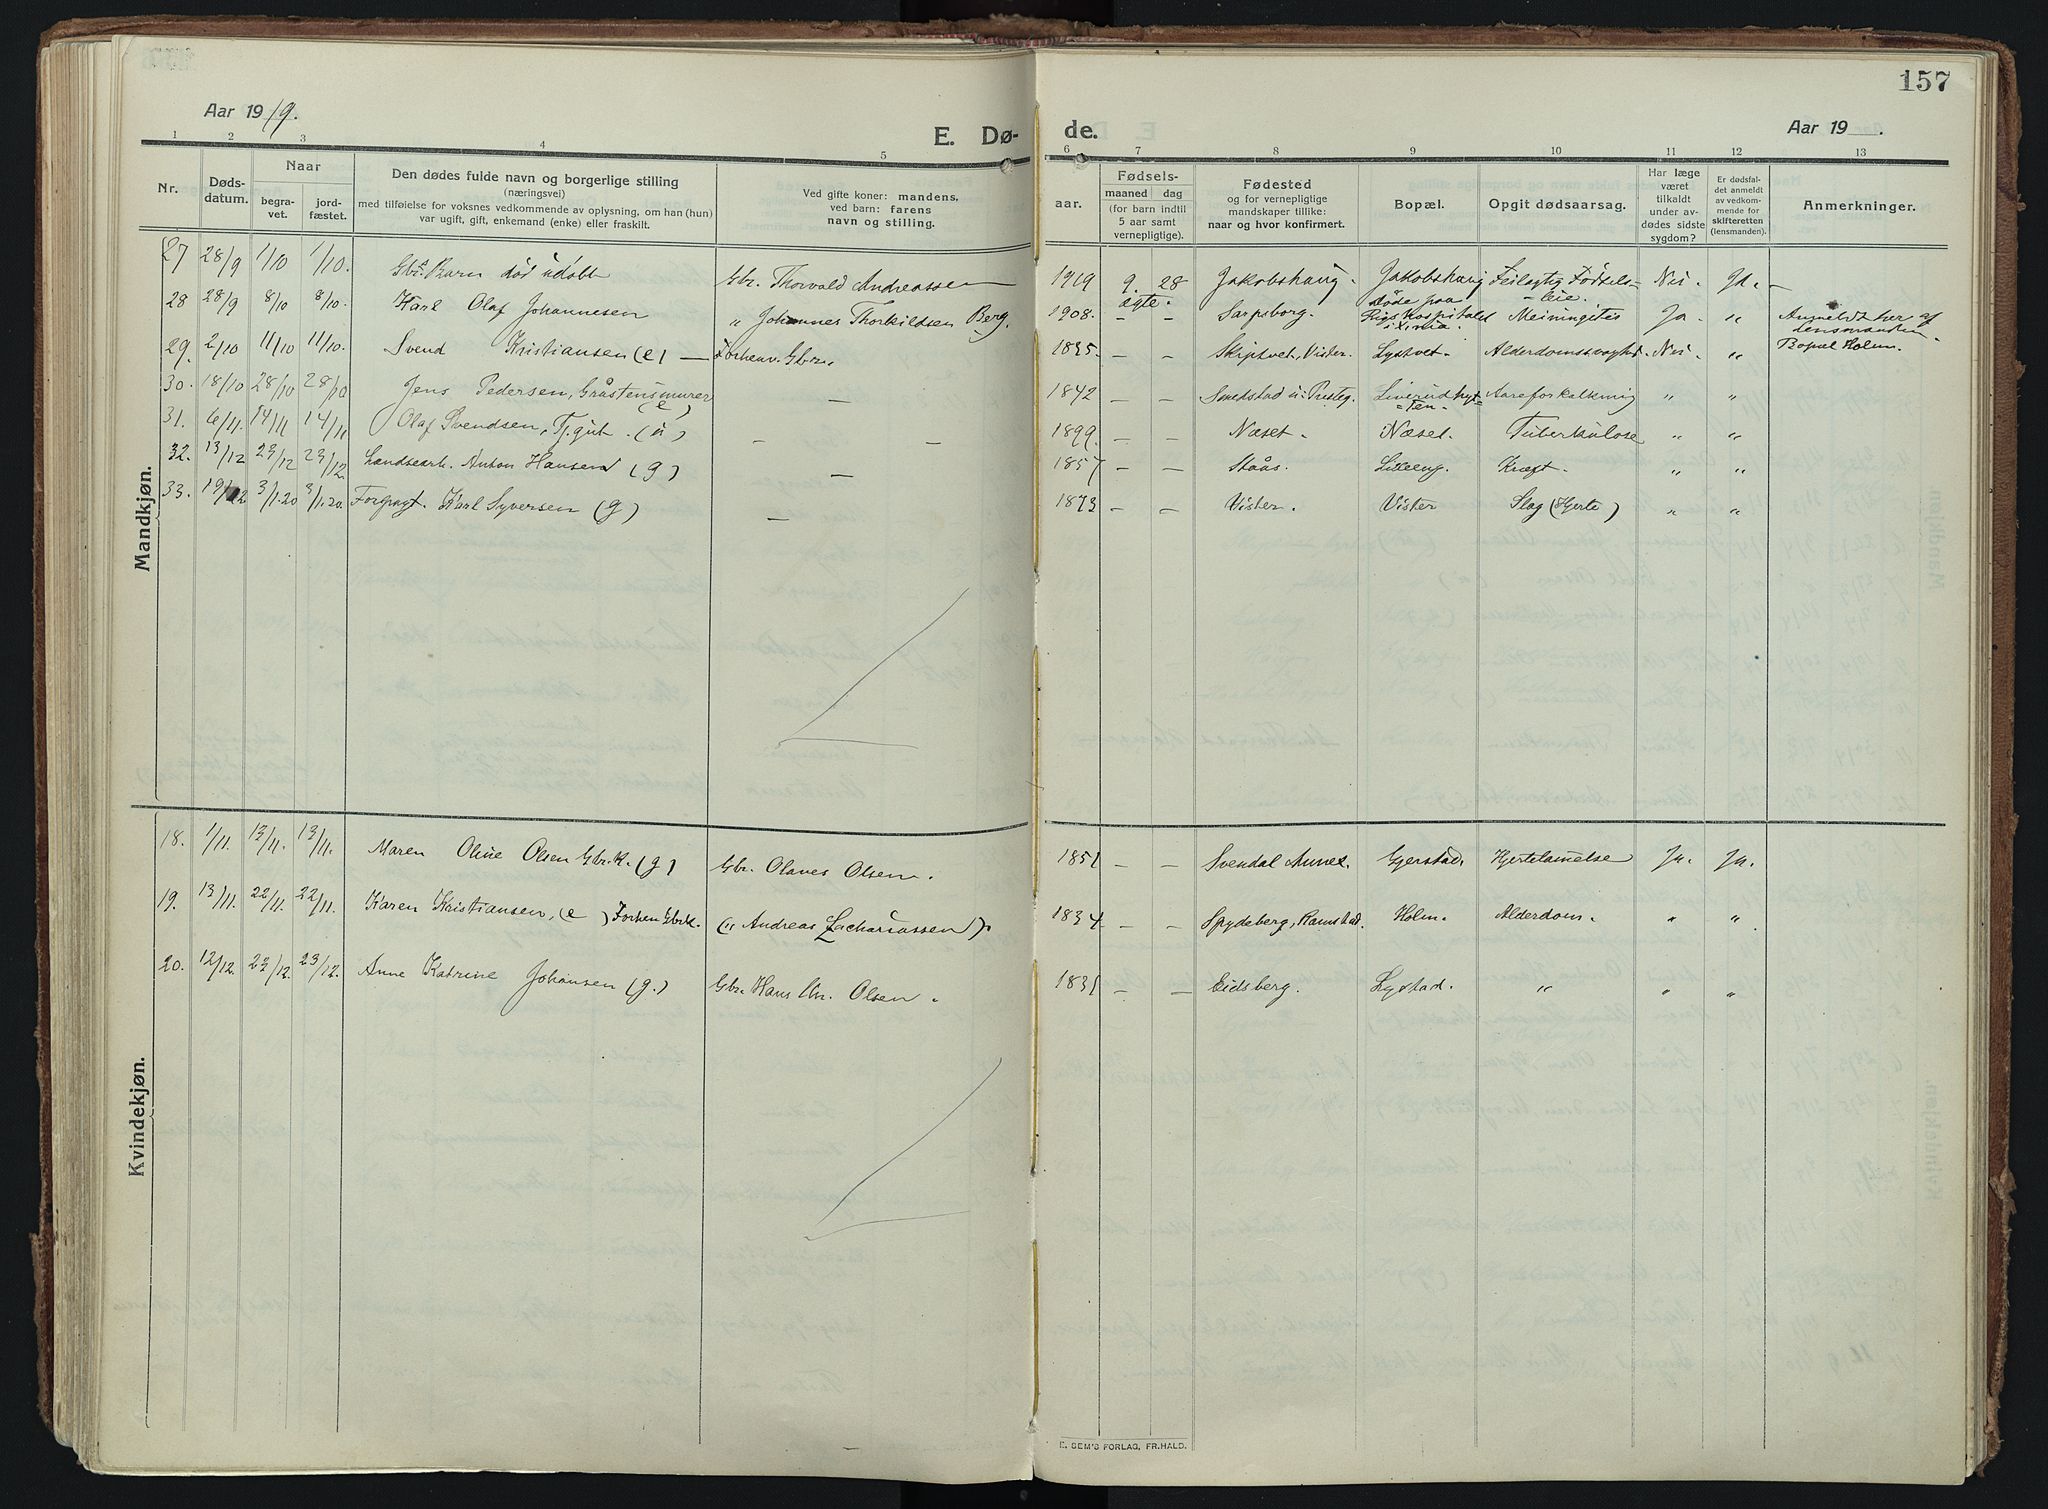 157
Aar 1919.
E. Dø-
de.
Aar 19 .
1 2 3 4 5 6 7 8 9 10 11 12 13
Nr.
Døds-
datum.
Naar
begra-
vet.
jord-
fæstet.
Den dødes fulde navn og borgerlige stilling
(næringsvei)
med tilføielse for voksnes vedkommende av oplysning, om han (hun)
var ugift, gift, enkemand (enke) eller fraskilt.
Ved gifte koner: mandens,
ved barn: farens
navn og stilling.
Fødsels-
aar.
maaned dag
(for barn indtil
5 aar samt
vernepligtige).
Fødested
og for vernepligtige
mandskaper tillike:
naar og hvor konfirmert.
Bopæl.
Opgit dødsaarsag.
Har læge
været
tilkaldt
under av-
dødes sidste
sygdom?
Er dødsfal-
det anmeldt
av vedkom-
mende for
skifteretten
(lensmanden).
Anmerkninger.
Mandkjøn.
27 28/9 1/10 1/10. Gbr. Barn død udøbt Gbr. Thorvald Andreassen 1919 9. 28 Jakobshaug. Jakobshaug Feilagtig Fødsels- Nei. Ja. —
ægte. leie.
28 28/9 8/10 8/10. Karl Olaf Johannesen „ Johannes Thorkildsen Berg. 1908. — Sarpsborg. Døde paa Rigshospitalet Meiningites Ja „ Anmeldt her af
lensmanden.
Bopæl Holm.
29. 2/10 11/10 11/10. Svend Kristiansen (e) — Forhenv. Gbr. 1835. — — Skiptvet, Vister. Lystvet. Alderdomssvaghed. Nei „
30. 18/10 28/10 28/10 Jens Pedersen, Gråstensmurer (e) — 1842 — — Smedstad i Presteg. Liverudhyt-
ten. Aareforkalkning „ „
31. 6/11. 14/11 14/11 Olaf Svendsen, Tj.gut. (u) — — 1899. — — Næset. Næset. Tuberkulose „ „
32. 13/12 23/12 23/12. Landsearb. Anton Hansen (g) — 1857 — — Staås. Lilleeng. Kræft. „ „
33. 19/12 3/1.20 3/1.20. Forpagt. Karl Syversen (g) — 1873 — — Vister. Vister Slag (Hjerte) „ „
Kvindekjøn.
18. 1/11. 13/11. 13/11. Maren Oline Olsen Gbr.K. (g) Gbr. Olaves Olsen. 1851 — — Svendal Annex. Gjerstad. Hjertelamelse Ja. Ja.
19. 13/11. 22/11. 22/11. Karen Kristiansen, (e) Forhen Gbrk. („ Andreas Zachariassen). 1834 — — Spydeberg, Ramstad. Holm. Alderdom. „ „
20. 12/12. 22/12. 23/12. Anne Katrine Johansen (g.) Gbr. Hans Chr. Olsen. 1831 — — Eidsberg. Lystad. „ „ „
E. SEM'S FORLAG, FR.HALD.